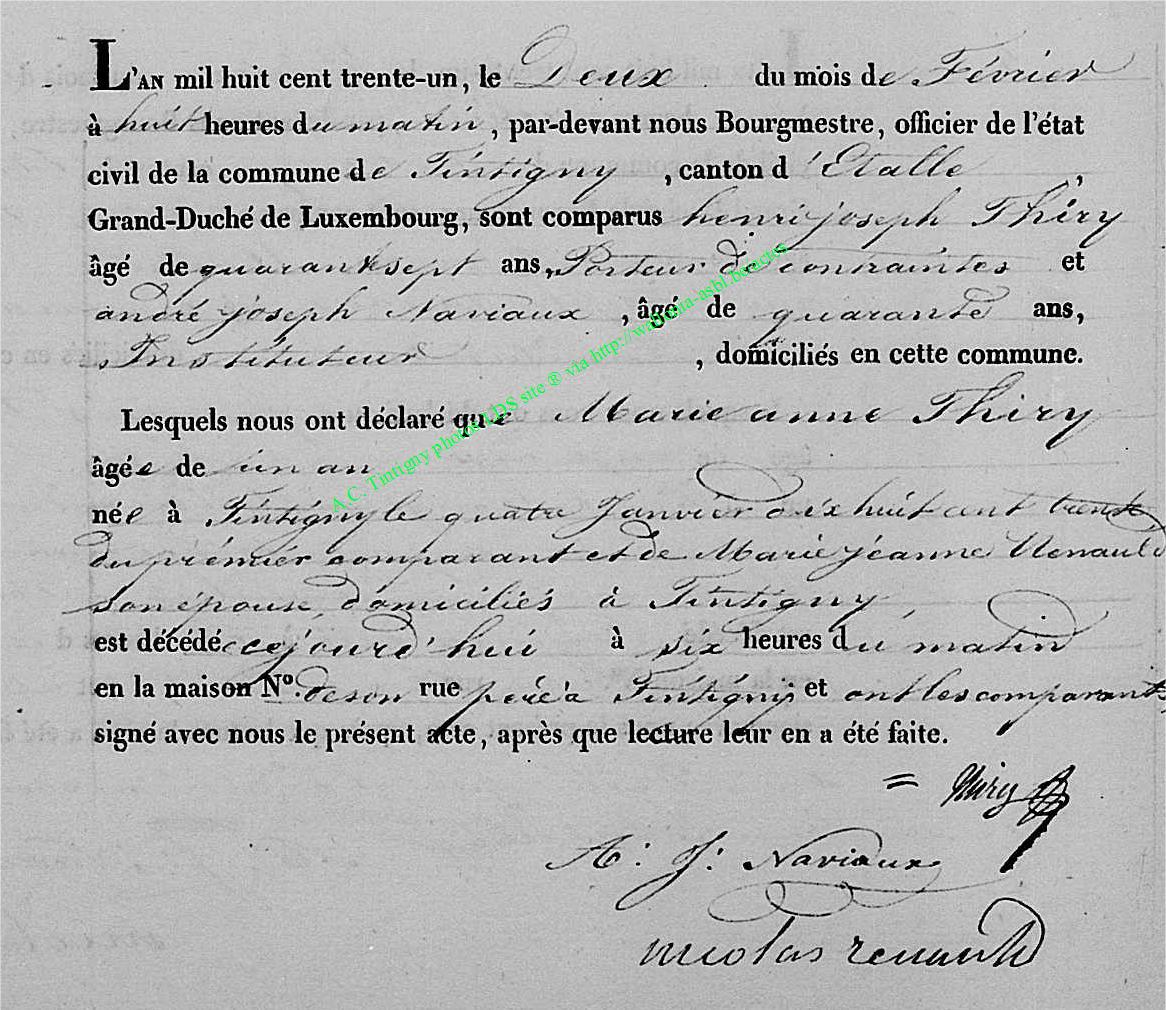 L'AN mil huit cent trente-un, le Deux du mois de Février
à huit heures du matin, par-devant nous Bourgmestre, officier de l'état
civil de la commune de Tintigny, canton d'Etalle,
Grand-Duché de Luxembourg, sont comparus henri joseph Thiry
âgé de quarante sept ans, Porteur de contraintes et
andré joseph Naviaux, âgé de quarante ans,
Instituteur, domiciliés en cette commune.
Lesquels nous ont déclaré que Marie anne Thiry
âgée de un an
née à Tintigny le quatre Janvier dix huit cent trente
du prémier comparant et de Marie jéanne Renauld
son épouse, domiciliés à Tintigny,
est décédé cejourd'hui à six heures du matin
en la maison N°. de son rue père à Tintigny et ont les comparants
signé avec nous le présent acte, après que lecture leur en a été faite.
= Thiry
A: J: Naviaux
nicolas renauld
A.C. Tintigny photos LDS site ® via http://wallonia-asbl.be/actes